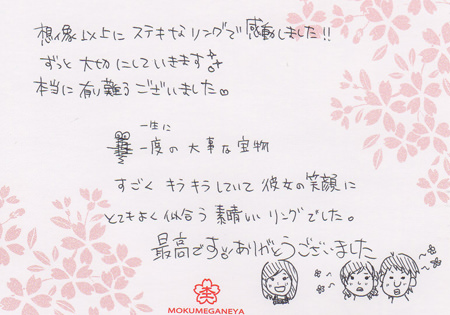 想像以上にステキなリングで感動しました!!
ずっと大切にしていきます
本当に有り難うございました
一生に
一度の大事な宝物
すごくキラキラしていて彼女の笑顔に
とてもよく似合う素晴しいリングでした。
最高ですありがとうございました
MOKUMEGANEYA